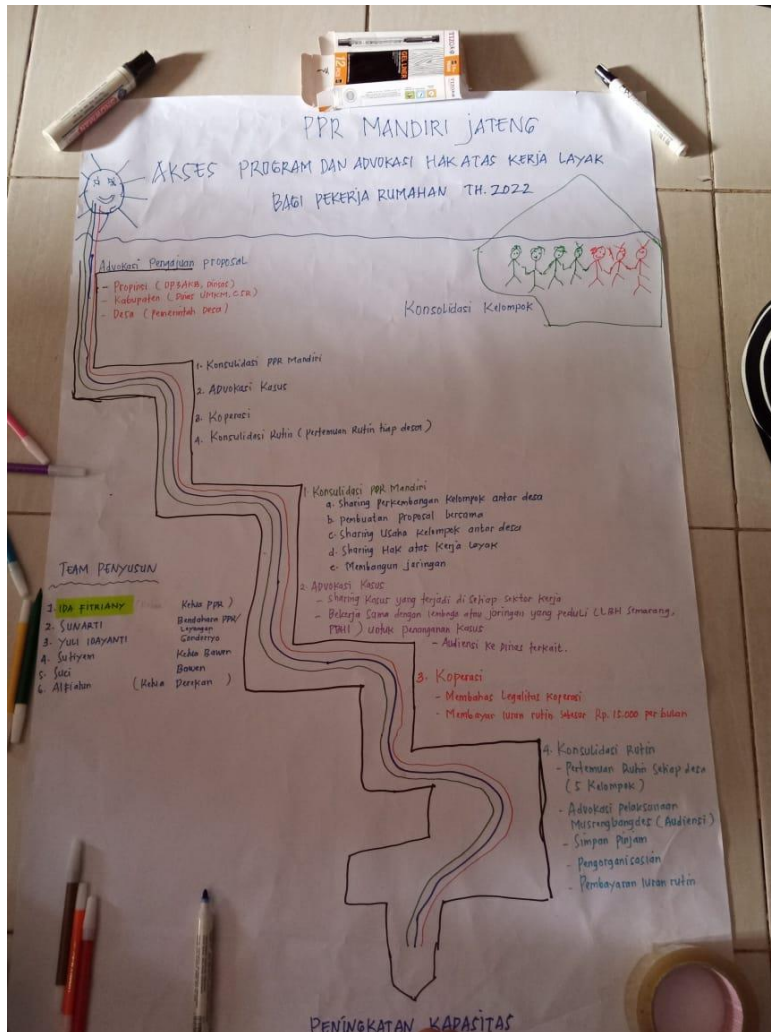 PPR MANDIRI JATENG
AKSES PROGRAM DAN ADVOKASI HAK ATAS KERJA LAYAK
BAGI PEKERJA RUMAHAN TH. 2022
Advokasi Pengajuan Proposal
- Propinsi (DP3AKB, Dinsos)
- Kabupaten (Dinas UMKM, CSR)
- Desa (Pemerintah Desa)
Konsolidasi Kelompok
1. Konsulidasi PPR Mandiri
2. Advokasi Kasus
3. Koperasi
4. Konsulidasi Rutin (Pertemuan Rutin tiap desa)
1. Konsulidasi PPR Mandiri
a. Sharing Perkembangan Kelompok antar desa
b. Pembuatan Proposal bersama
c. Sharing Usaha Kelompok antar desa
d. Sharing Hak atas Kerja Layak
e. Membangun jaringan
2. Advokasi Kasus
- Sharing Kasus yang terjadi di Setiap Sektor Kerja
- Bekerja Sama dengan lembaga atau jaringan yang peduli (LBH Semarang,
) untuk penanganan Kasus
- Audiensi Ke Dinas terkait.
3. Koperasi
- Membahas Legalitas Koperasi
- Membayar Iuran rutin sebesar Rp. 15.000 per bulan
4. Konsulidasi Rutin
- Pertemuan Rutin Setiap desa
(5 Kelompok)
- Advokasi pelaksanaan
Musrengbangdes (Audiensi)
- Simpan Pinjam
- Pengorganisasian
- Pembayaran Iuran rutin
TEAM PENYUSUN
1. IDA FITRIANY Ketua PPR)
2. SUNARTI Bendahara PPR/
Leyangan
3. YULI IDAYANTI Gondoriyo
4. Sutiyem Ketua Bawen
5. Suci Bawen
6. Alfiatun (Ketua Derekan)
PENINGKATAN KAPASITAS